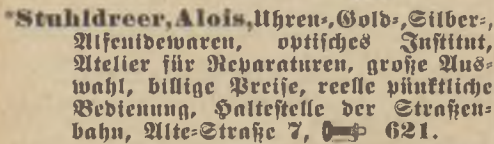 *Stuhldreer, Alois, Uhren-, Gold-, Silber-,
Alfenidewaren, optisches Institut,
Atelier für Reparaturen, große Aus-
wahl, billige Preise, reelle pünktliche
Bedienung, Haltestelle der Straßen-
bahn, Alte-Straße 7, 621.